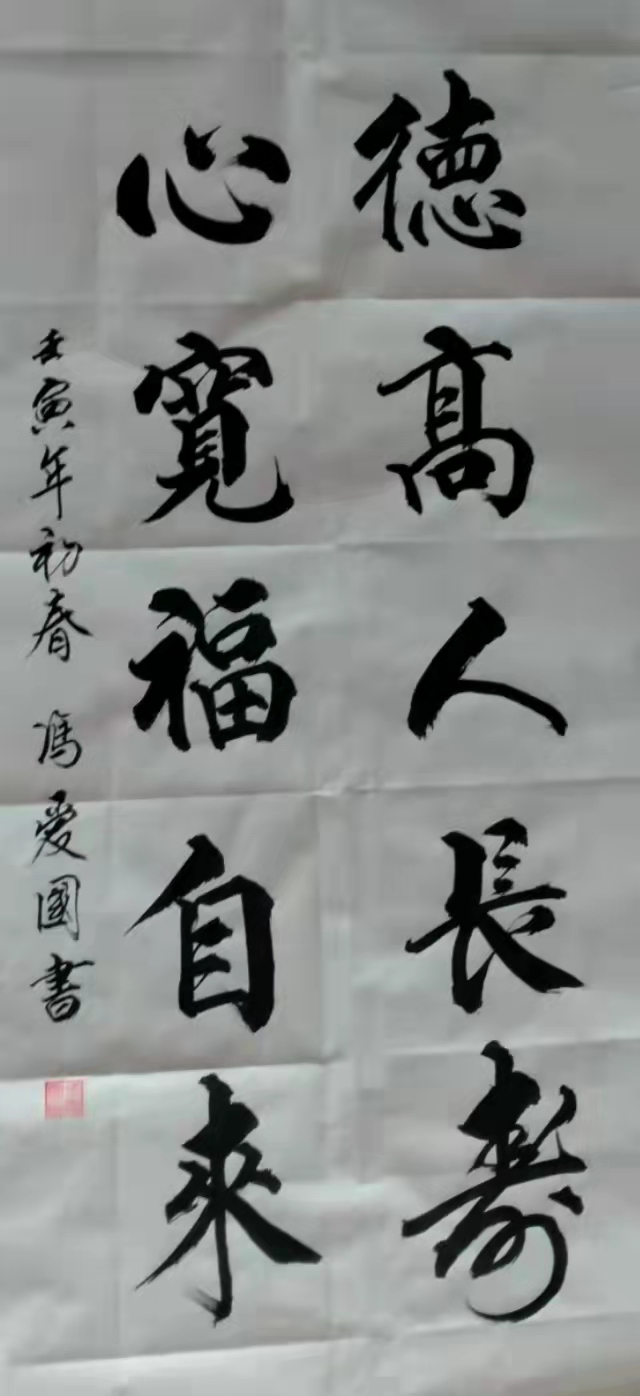 德高人長壽
心寬福自來
壬寅年初春 馮愛國書